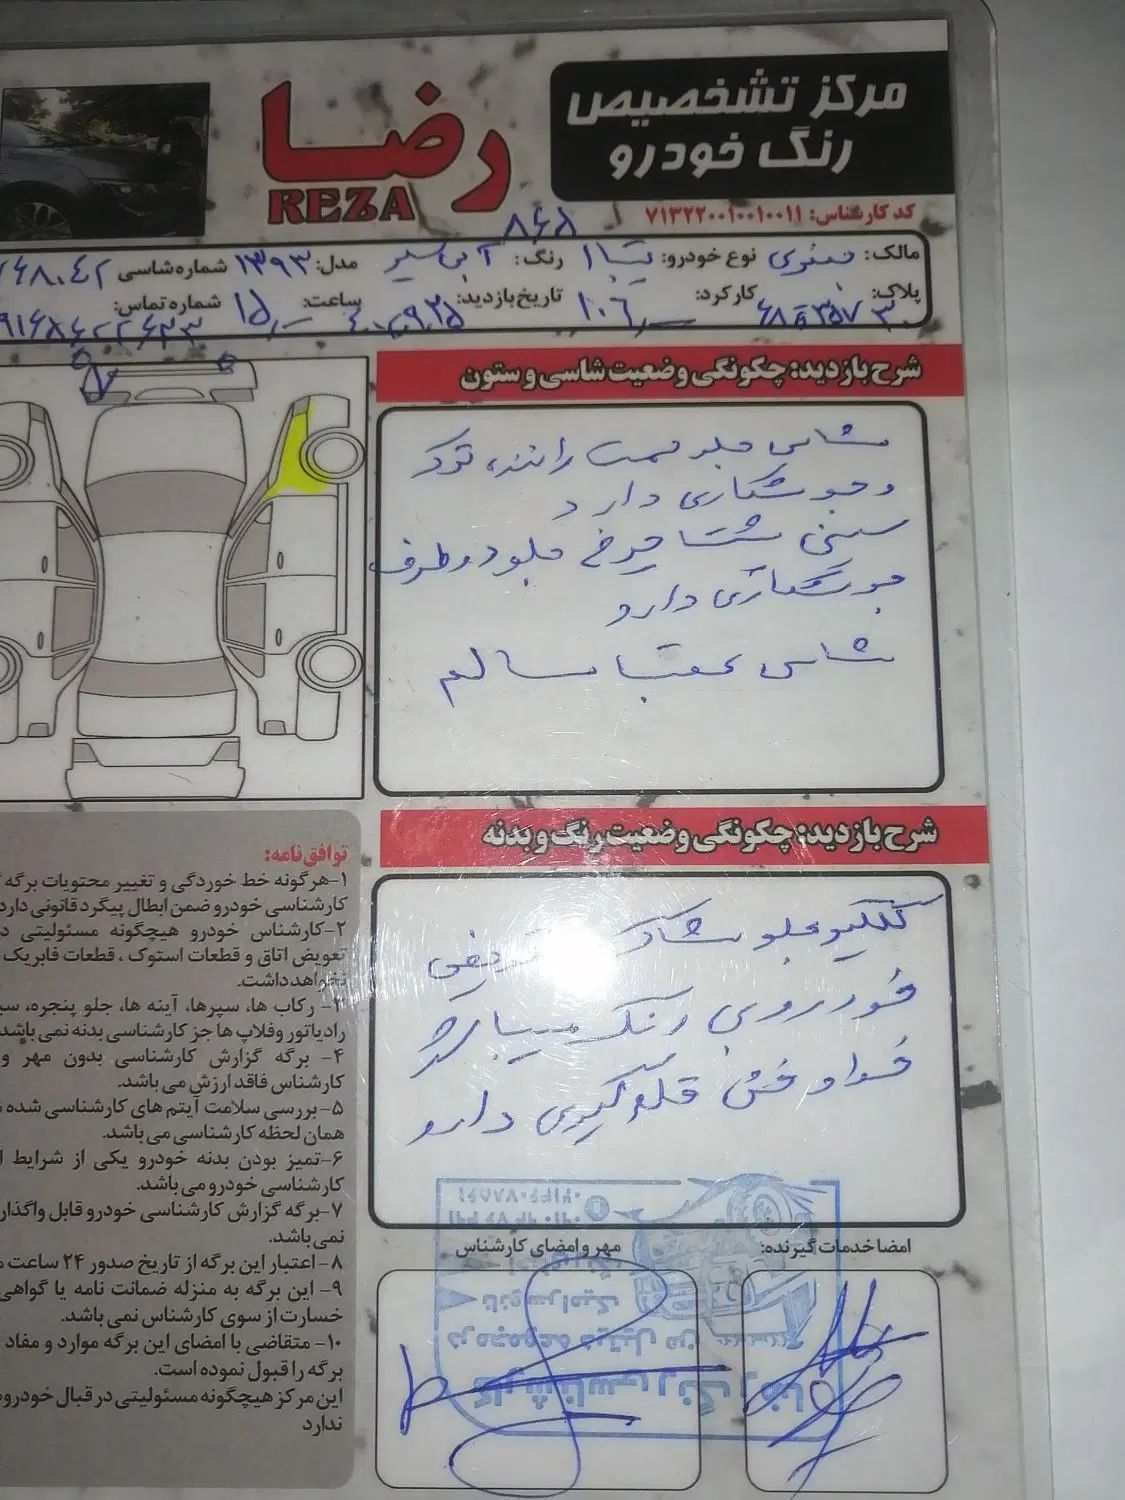 مرکز تشخیص
رنگ خودرو
رضا
REZA
کد کارشناس: ۷۱۳۲۲۰۰۱۰۰۱۰۰۱۱
۸۶۸
مالک: نوع خودرو: تیبا ۱ رنگ: آبی سیر مدل: ۱۳۹۳ شماره شاسی
پلاک: کارکرد: ۱۰۶ تاریخ بازدید: ۴۰۲٫۹٫۲۵ ساعت: ۱۵ شماره تماس:
شرح بازدید: چکونگی وضعیت شاسی و ستون
شاسی جلو سمت راننده ترک
و جوشکاری دارد
سینی شتا چرخ جلو دو طرف
جوشکاری دارد
شاسی عقب سالم
شرح بازدید: چکونگی وضعیت رنگ و بدنه
گلگیر جلو شاگرد تعویض
خودرو بی رنگ میباشد
خط و خش لکه گیری دارد
توافق نامه:
۱- هرگونه خط خوردگی و تغییر محتویات برگه
کارشناسی خودرو ضمن ابطال پیگرد قانونی دارد
۲- کارشناس خودرو هیچگونه مسئولیتی
تعویض اتاق و قطعات استوک ، قطعات فابریک
نخواهد داشت.
۳- رکاب ها، سپرها، آینه ها، جلو پنجره،
رادیاتور و قلاب ها جز کارشناسی بدنه نمی باشد
۴- برگه گزارش کارشناسی بدون مهر و
کارشناس فاقد ارزش می باشد.
۵- بررسی سلامت آیتم های کارشناسی شده
همان لحظه کارشناسی می باشد.
۶- تمیز بودن بدنه خودرو یکی از شرایط
کارشناسی خودرو می باشد.
۷- برگه گزارش کارشناسی خودرو قابل واگذار
نمی باشد.
۸- اعتبار این برگه از تاریخ صدور ۲۴ ساعت
۹- این برگه به منزله ضمانت نامه یا گواهی
خسارت از سوی کارشناس نمی باشد.
۱۰- متقاضی با امضای این برگه موارد و مفاد
برگه را قبول نموده است.
این مرکز هیچگونه مسئولیتی در قبال خودرو
ندارد
امضا خدمات گیرنده:
مهر و امضای کارشناس